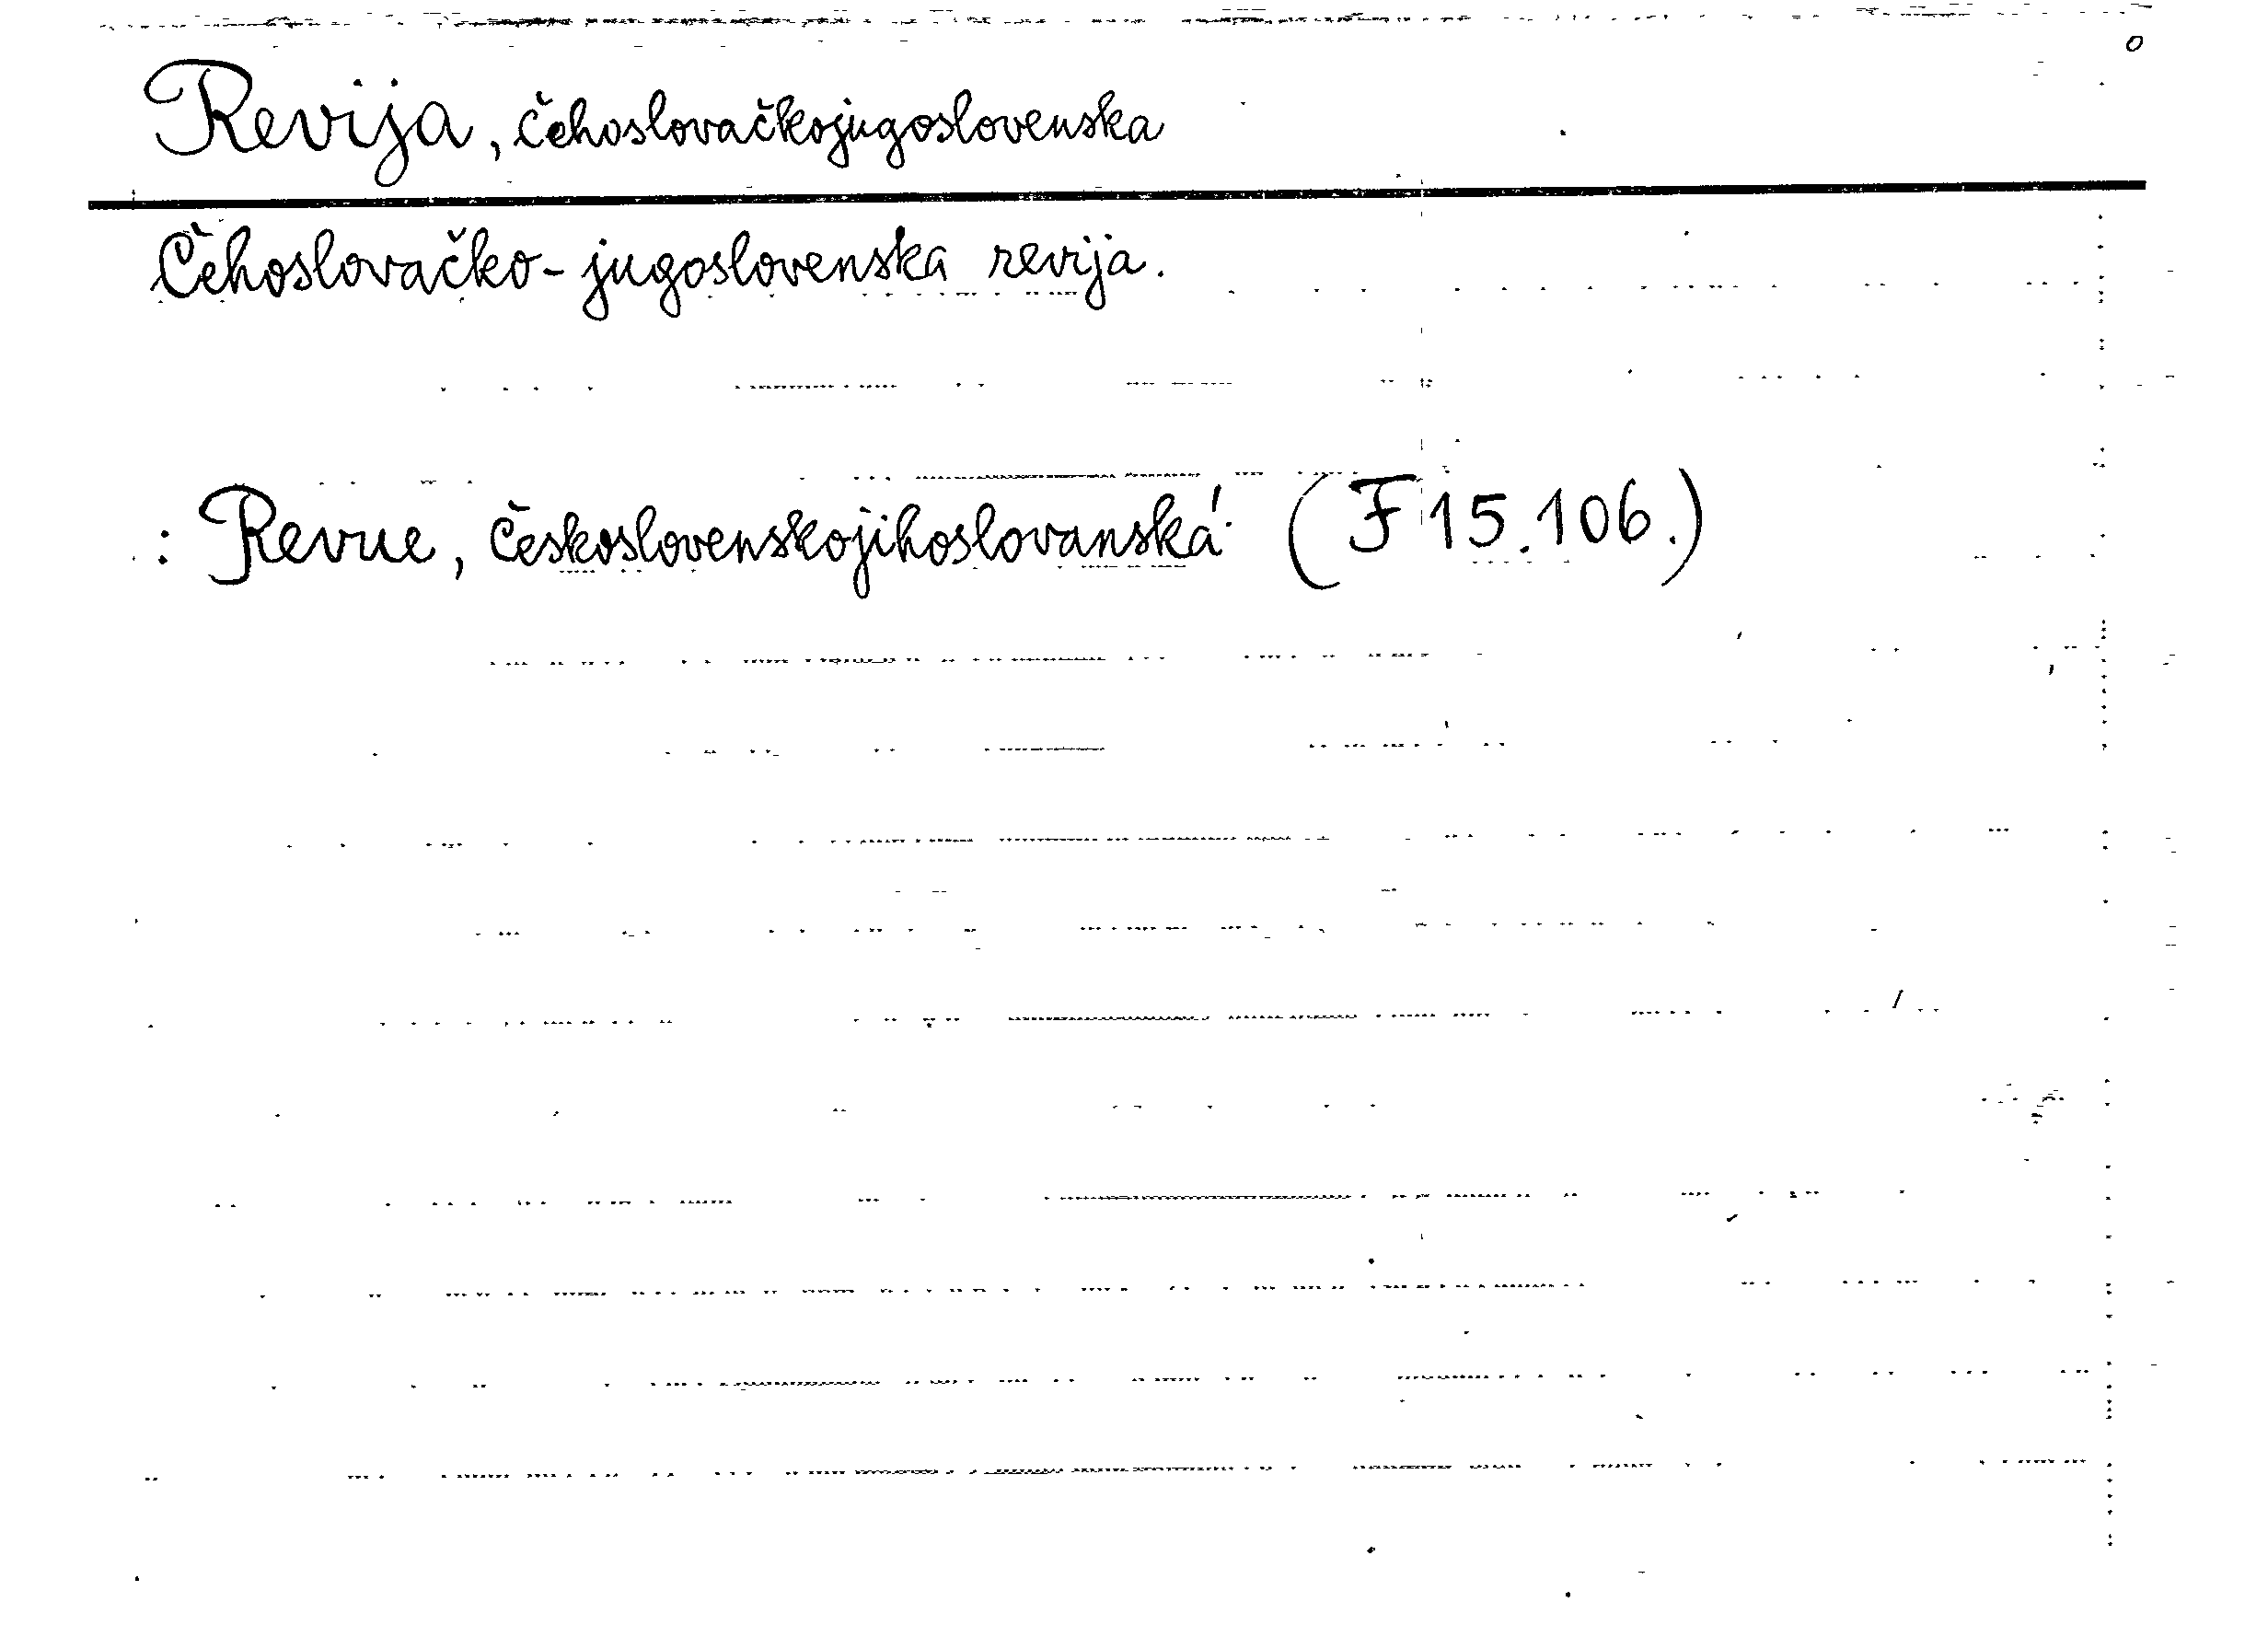 Revija, čehoslovačkojugoslovenska
Čehoslovačko-jugoslovenska revija.
: Revue, československojihoslovanská. (F 15.106.)